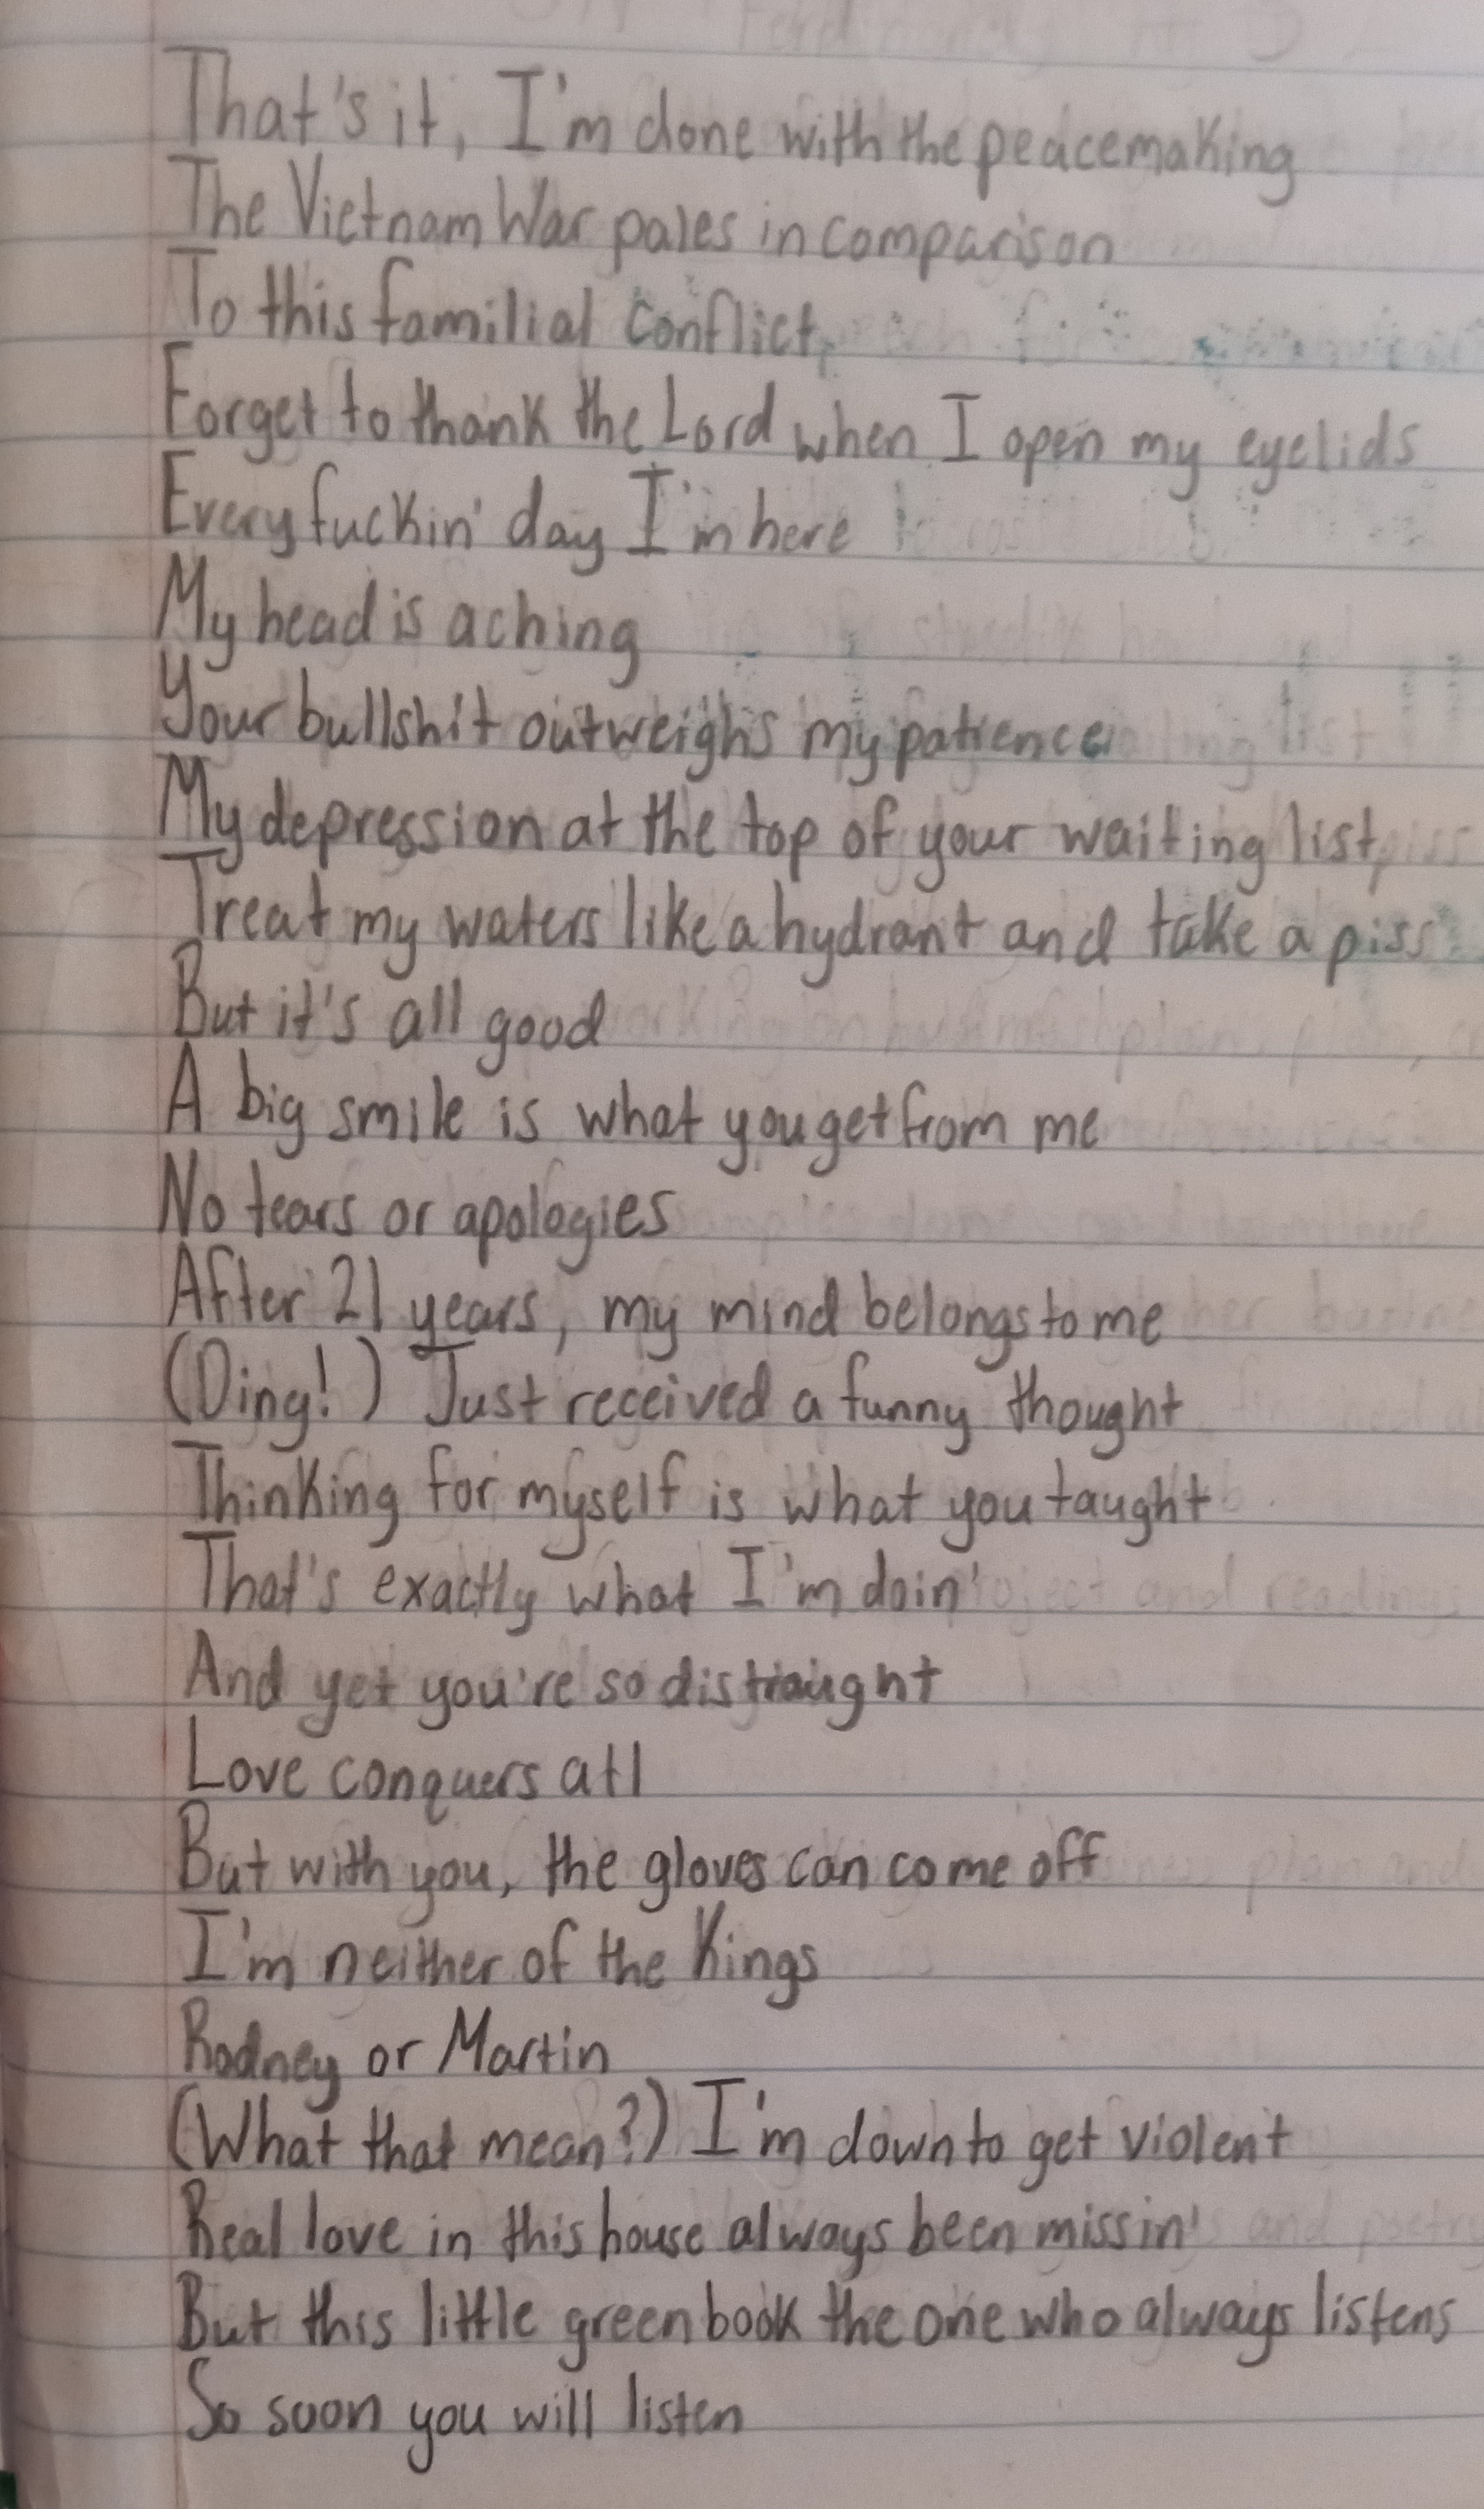 That's it, I'm done with the peacemaking
The Vietnam War pales in comparison
To this familial conflict,
Forget to thank the Lord when I open my eyelids
Every fuckin' day I'm here
My head is aching
Your bullshit outweighs my patience
My depression at the top of your waiting list,
Treat my waters like a hydrant and take a piss
But it's all good
A big smile is what you get from me
No tears or apologies
After 21 years, my mind belongs to me
(Ding!) Just received a funny thought
Thinking for myself is what you taught
That's exactly what I'm doin'
And yet you're so distraught
Love conquers all
But with you, the gloves can come off
I'm neither of the Kings
Rodney or Martin
(What that mean?) I'm down to get violent
Real love in this house always been missin'
But this little green book the one who always listens
So soon you will listen